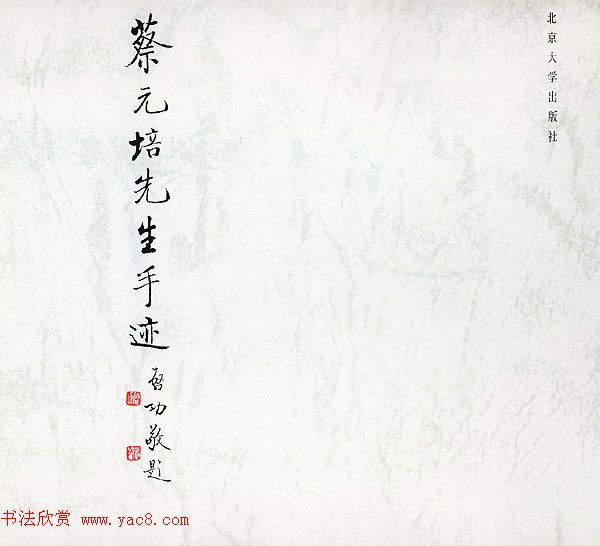 北京大学出版社
蔡元培先生手迹
启功敬题
书法欣赏 www.yac8.com